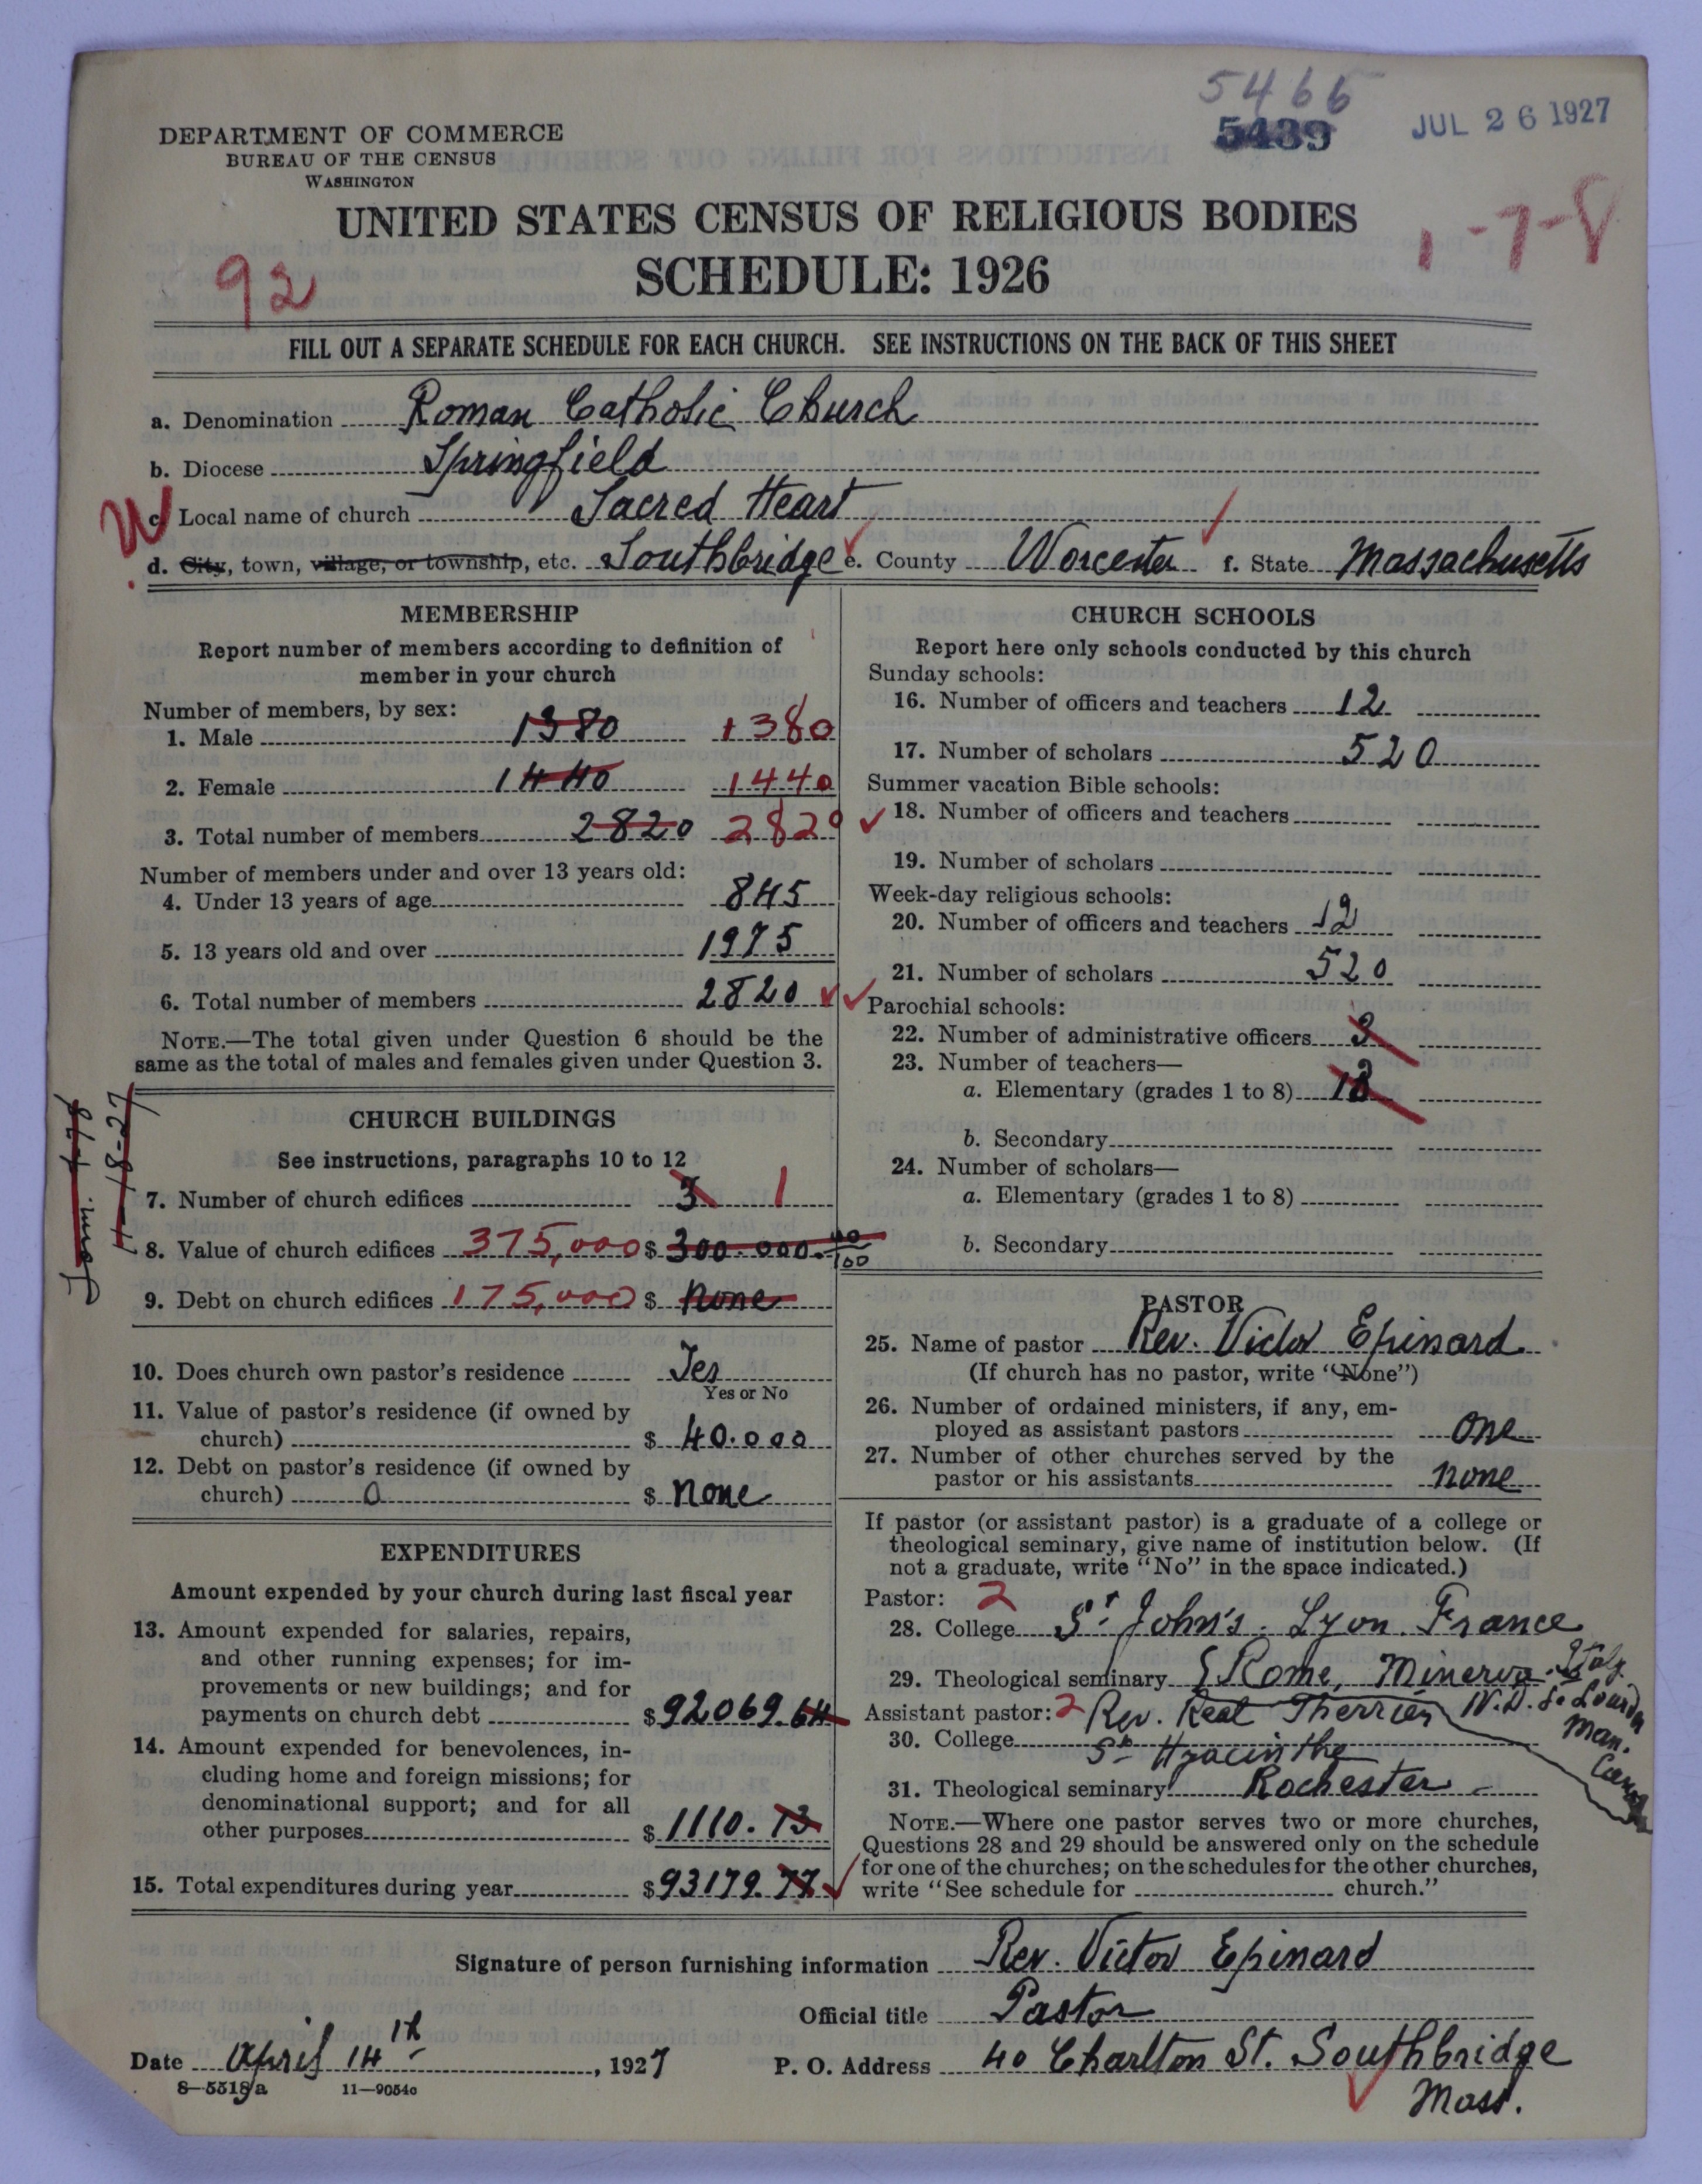 5466
5439
JUL 26 1927
DEPARTMENT OF COMMERCE
BUREAU OF THE CENSUS
WASHINGTON
UNITED STATES CENSUS OF RELIGIOUS BODIES
1-7-8
92
SCHEDULE: 1926
FILL OUT A SEPARATE SCHEDULE FOR EACH CHURCH. SEE INSTRUCTIONS ON THE BACK OF THIS SHEET
a. Denomination Roman Catholic Church
b. Diocese Springfield
W
c. Local name of church Sacred Heart
d. City, town, village, or township, etc. Southbridge e. County Worcester f. State Massachusetts
MEMBERSHIP
Report number of members according to definition of
member in your church
Number of members, by sex:
1. Male 1380 1380
2. Female 1440 1440
3. Total number of members 2820 2820
Number of members under and over 13 years old:
4. Under 13 years of age 845
5. 13 years old and over 1975
6. Total number of members 2820
NOTE.—The total given under Question 6 should be the
same as the total of males and females given under Question 3.
CHURCH BUILDINGS
See instructions, paragraphs 10 to 12
7. Number of church edifices 3 1
8. Value of church edifices 375,000 $ 300.000.00/100
9. Debt on church edifices 175,000 $ none
10. Does church own pastor's residence Yes
Yes or No
11. Value of pastor's residence (if owned by
church) $ 40.000
12. Debt on pastor's residence (if owned by
church) 0 $ none
EXPENDITURES
Amount expended by your church during last fiscal year
13. Amount expended for salaries, repairs,
and other running expenses; for im-
provements or new buildings; and for
payments on church debt $92069.64
14. Amount expended for benevolences, in-
cluding home and foreign missions; for
denominational support; and for all
other purposes $1110.13
15. Total expenditures during year $93179.77
CHURCH SCHOOLS
Report here only schools conducted by this church
Sunday schools:
16. Number of officers and teachers 12
17. Number of scholars 520
Summer vacation Bible schools:
18. Number of officers and teachers
19. Number of scholars
Week-day religious schools:
20. Number of officers and teachers 12
21. Number of scholars 520
Parochial schools:
22. Number of administrative officers
23. Number of teachers—
a. Elementary (grades 1 to 8)
b. Secondary
24. Number of scholars—
a. Elementary (grades 1 to 8)
b. Secondary
PASTOR
25. Name of pastor Rev. Victor Epinard
(If church has no pastor, write "None")
26. Number of ordained ministers, if any, em-
ployed as assistant pastors one
27. Number of other churches served by the
pastor or his assistants none
If pastor (or assistant pastor) is a graduate of a college or
theological seminary, give name of institution below. (If
not a graduate, write "No" in the space indicated.)
Pastor: 2
28. College St John's. Lyon. France
29. Theological seminary Rome, Minerva. Italy
N.D. de Lourdes
Man.
Canada
Assistant pastor: 2 Rev. Real Therrien
30. College St Hyacinthe
31. Theological seminary Rochester
NOTE.—Where one pastor serves two or more churches,
Questions 28 and 29 should be answered only on the schedule
for one of the churches; on the schedules for the other churches,
write "See schedule for church."
Signature of person furnishing information Rev. Victor Epinard
Official title Pastor
Date April 14th, 1927 P. O. Address 40 Charlton St. Southbridge
Mass.
8—5518a 11—9054c